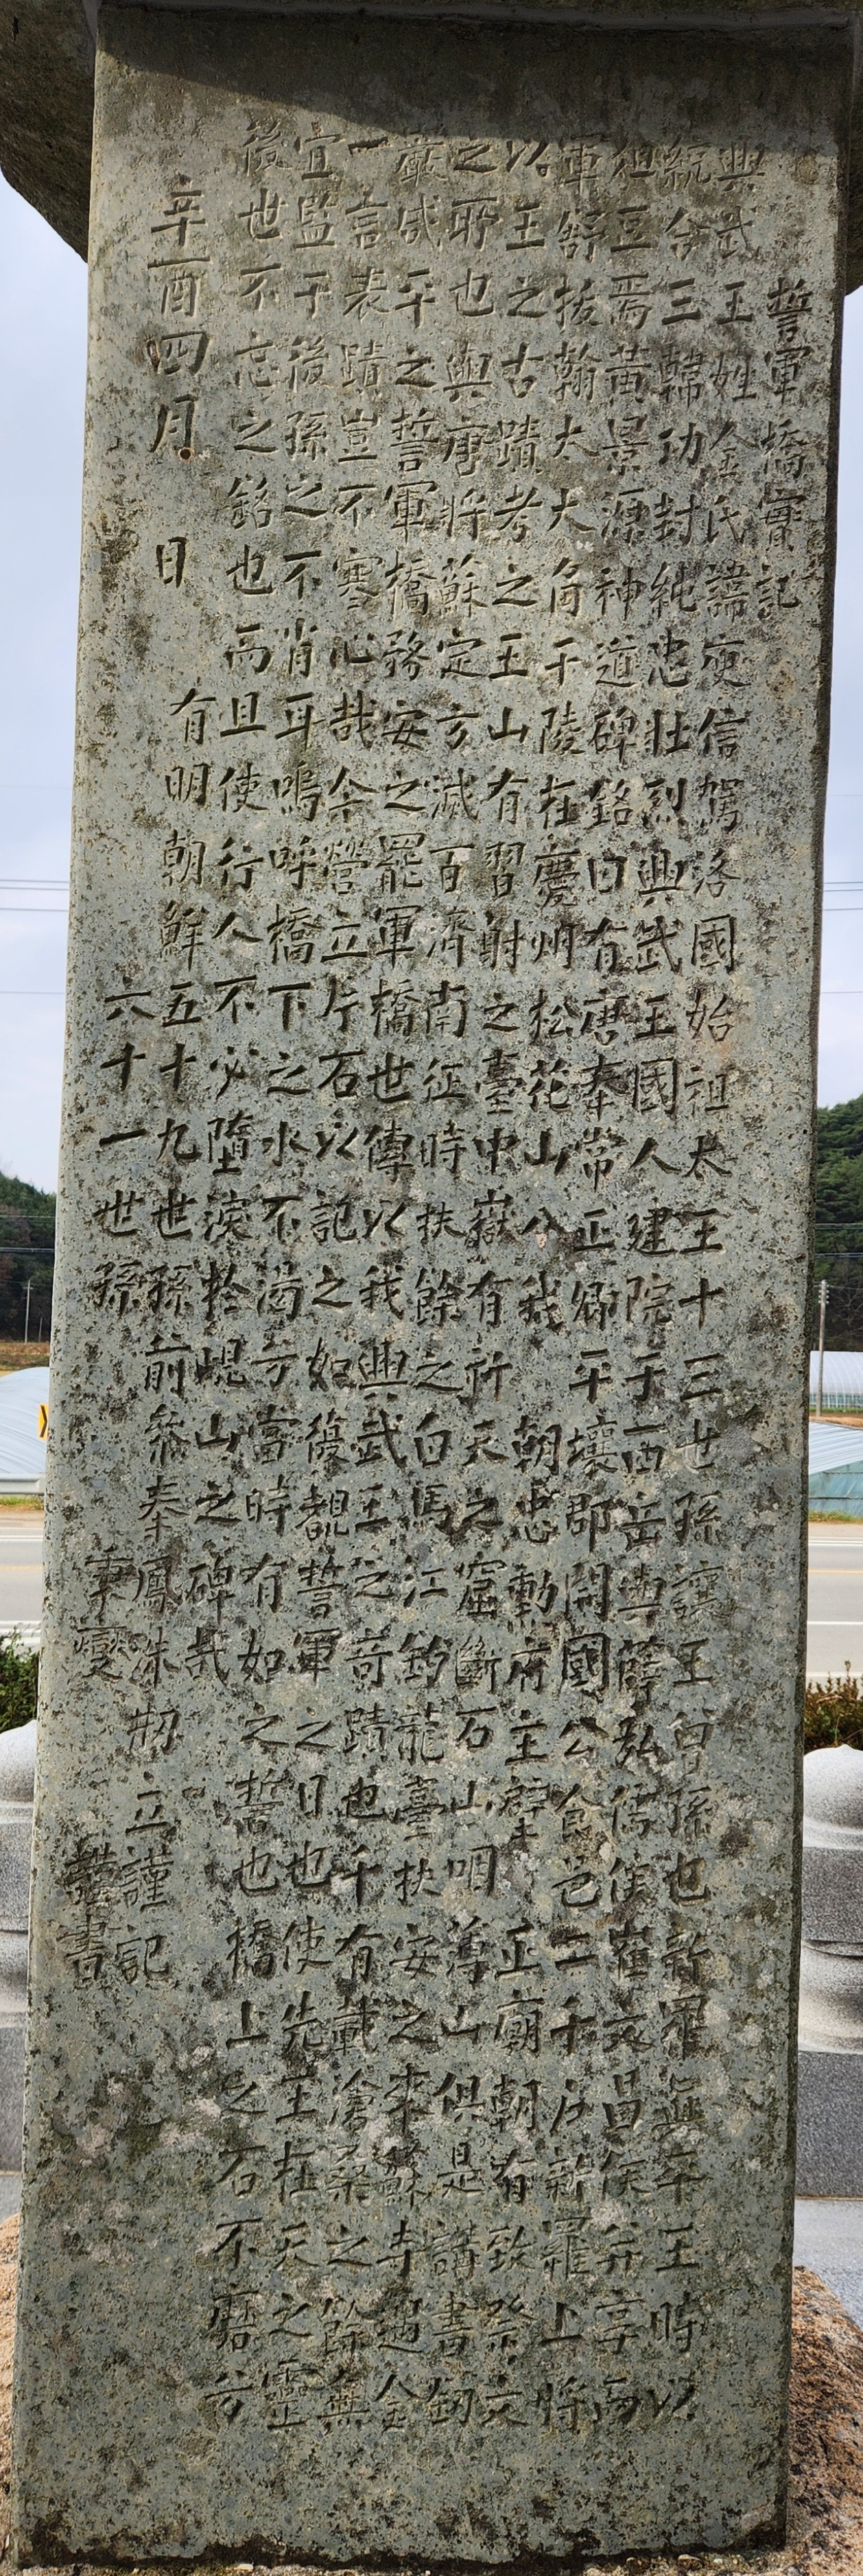 誓軍橋實記
興武王姓金氏諱庾信駕洛國始祖太王十三世孫讓王曾孫也新羅眞平王時以
統合三韓功封純忠壯烈興武王國人建院于西岳與薛弘儒侯崔文昌侯并享而
俎豆焉黃景源神道碑銘曰有唐奉常正卿平壤郡開國公食邑二千戶新羅上將
軍舒拔翰大大角干陵在慶州松花山八我 朝忠勳府主壁 正廟朝有致祭文
以王之古蹟考之王山有習射之臺中嶽有祈天之窟斷石山咽薄山俱是講書劒
之所也與唐將蘇定方滅百濟南征時扶餘之白馬江釣龍臺扶安之來蘇寺遇金
嚴咸平之誓軍橋務安之罷軍橋世傳以我興武王之奇蹟也千有載滄桑之餘無
一言表蹟豈不寒心哉今營立片石以記之如復覩誓軍之日也使先王在天之靈
宜監于後孫之不肖耳嗚呼橋下之水不渴兮當時有如之誓也橋上之石不磨兮
後世不忘之銘也而且使行人不必墮淚於峴山之碑哉
辛酉四月 日 有明朝鮮五十九世孫前參奉鳳洙刱立謹記
六十一世孫 秉燮 謹書